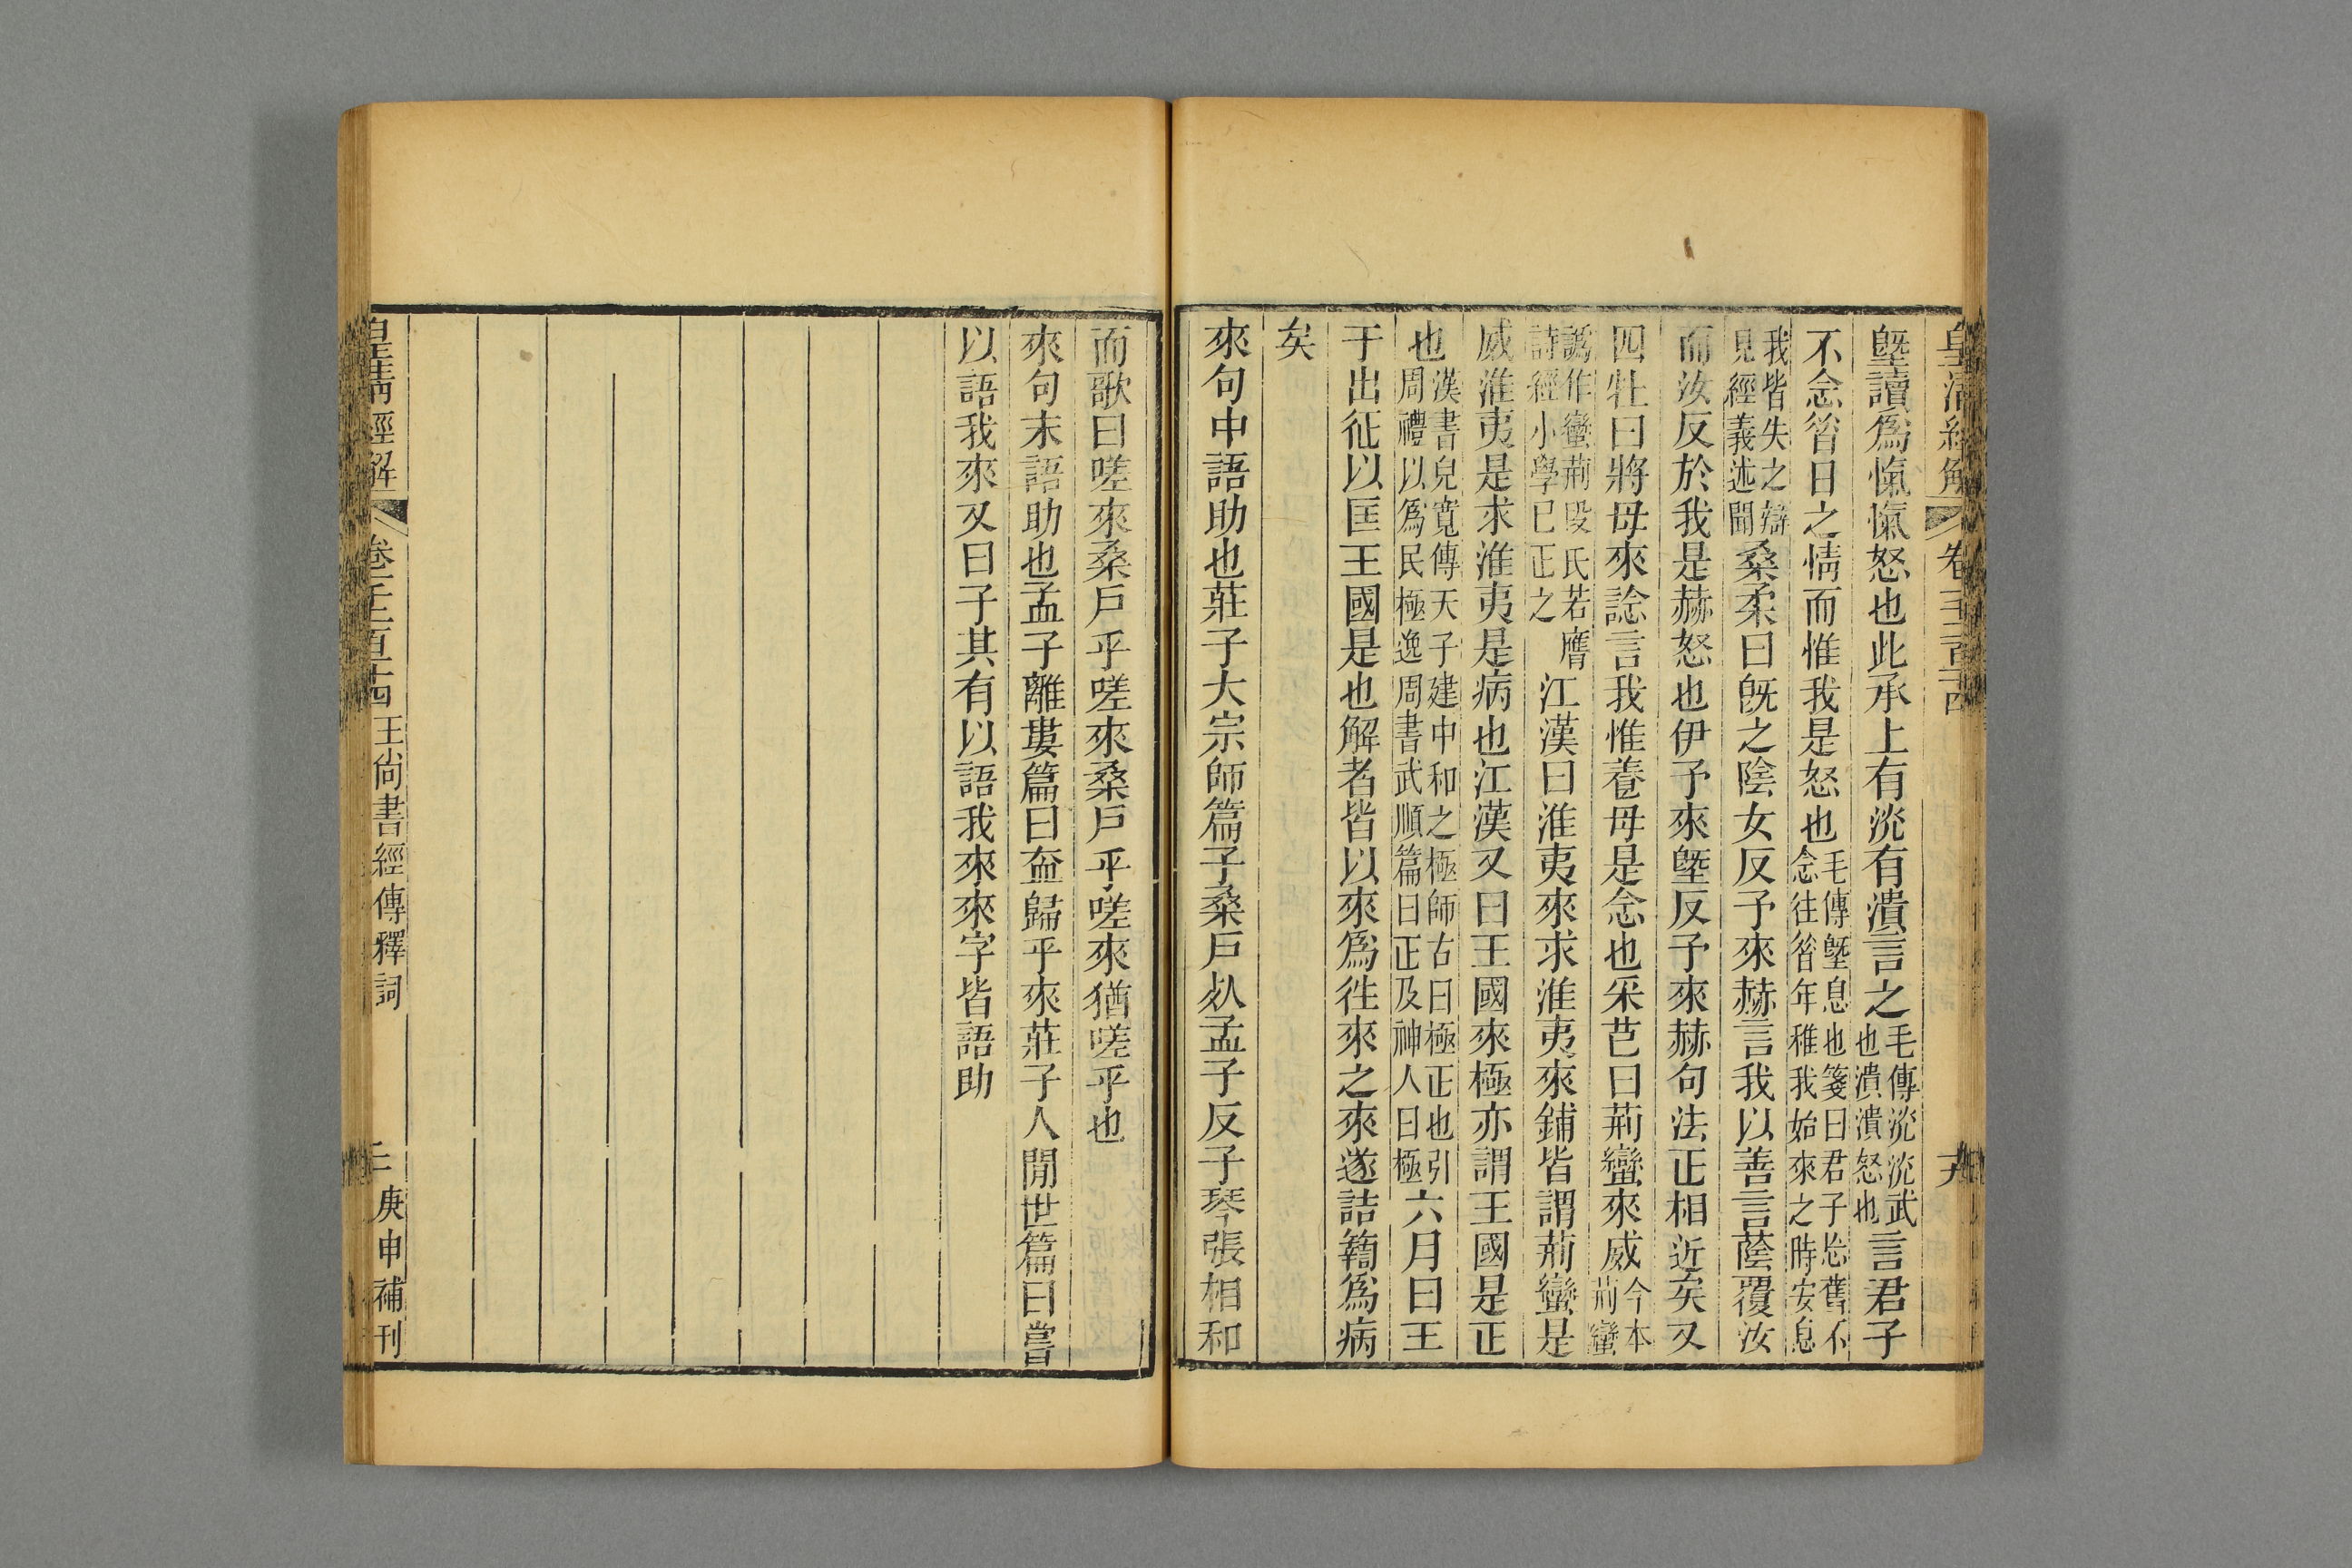 皇清經解 卷千二百十四
墍讀爲愾愾怒也此承上有洸有潰言之毛傳洸洸武也潰潰怒也言君子
不念笤日之情而惟我是怒也毛傳墍息也箋曰君子忘舊不念往笤年稚我始來之時安息
我皆失之辯見經義述聞桑柔曰旣之陰女反予來赫言我以善言蔭覆汝
而汝反於我是赫怒也伊予來墍反予來赫句法正相近矣又
四牡曰將母來諗言我惟養母是念也采芑曰荊蠻來威今本荊蠻
譌作蠻荊段氏若膺詩經小學已正之江漢曰淮夷來求淮夷來鋪皆謂荊蠻是
威淮夷是求淮夷是病也江漢又曰王國來極亦謂王國是正
也漢書兒寬傳天子建中和之極師古曰極正也引周禮以爲民極逸周書武順篇曰正及神人曰極六月曰王
于出征以匡王國是也解者皆以來爲往來之來遂詰𥷚爲病
矣
來句中語助也莊子大宗師篇子桑戶㱙孟子反子琴張相和
而歌曰嗟來桑戶乎嗟來桑戶乎嗟來猶嗟乎也
來句末語助也孟子離婁篇曰盍歸乎來莊子人閒世篇曰嘗
以語我來又曰子其有以語我來來字皆語助
皇清經解 卷千二百十四 王尙書經傳釋詞 二 庚申補刊